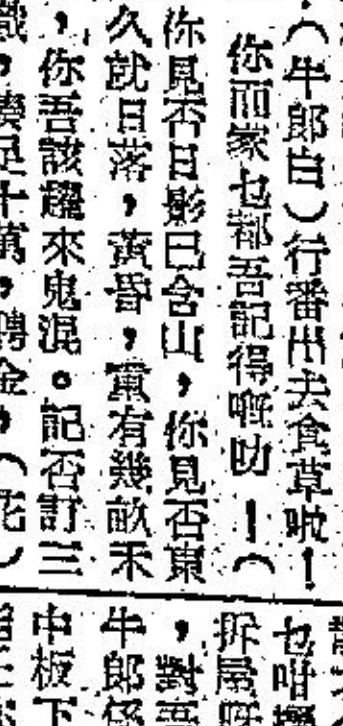 （牛郎白）行番出去食草啦！
你而家乜都吾記得嘅叻！（
你見否日影已含山，你見否東
久就日落，黃昏，重有幾畝禾
，你吾該趯來鬼混。記否訂三
織，湊足十萬，聘金，（花）
乜咁
拆屋呀
，對吾
牛郎係
中板下